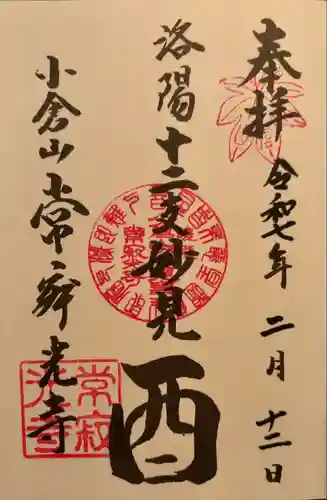 奉拝
令和七年 二月 十二日
洛陽十二支妙見
酉
小倉山常寂光寺
常寂
光寺